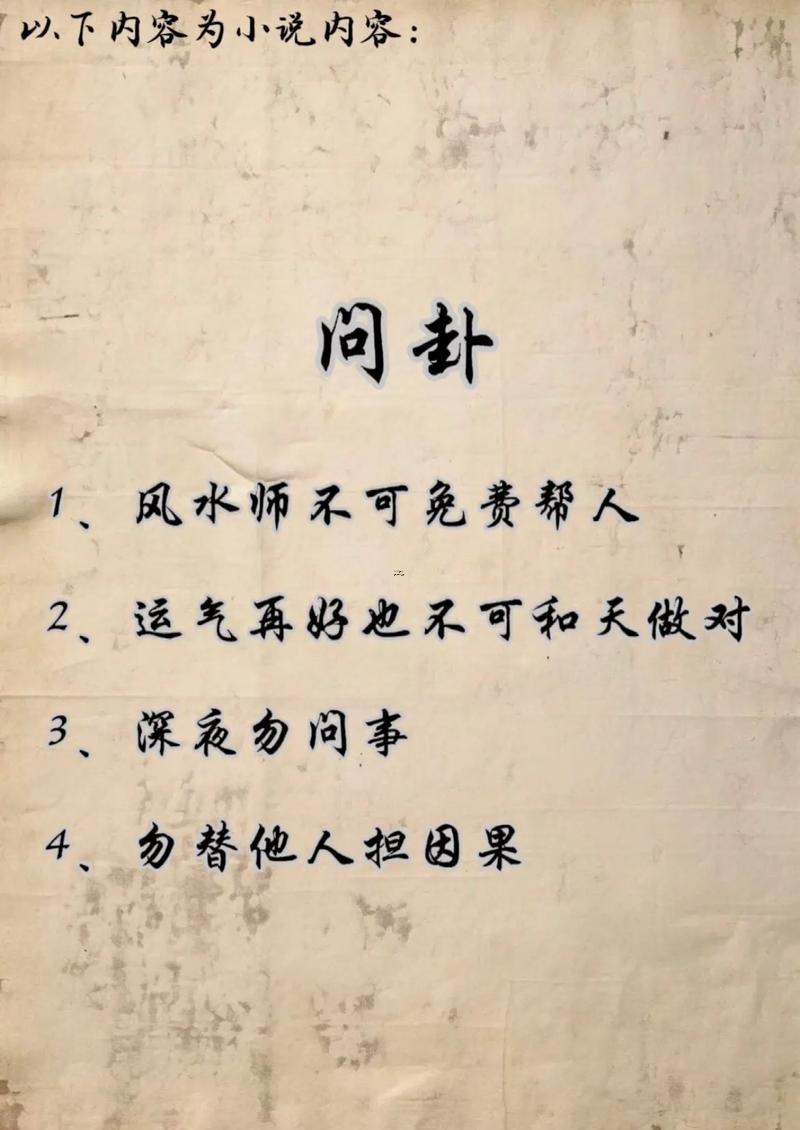 以下内容为小说内容：
问卦
1、风水师不可免费帮人
2、运气再好也不可和天做对
3、深夜勿问事
4、勿替他人担因果